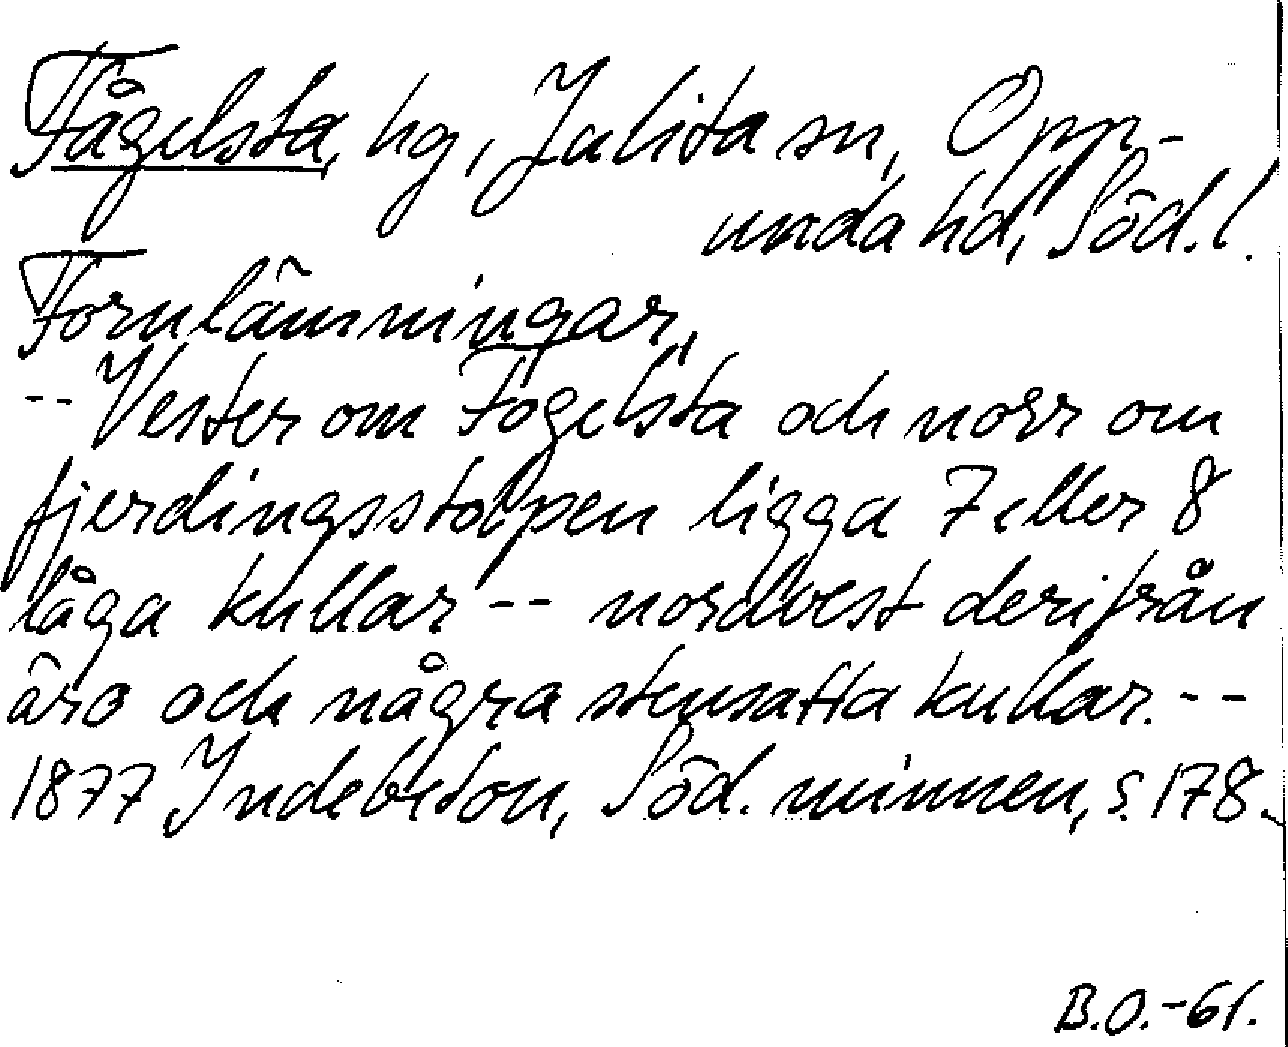 Fågelsta, hg, Julita sn, Opp-
unda hd, Söd. l.
Fornlämningar,
-- Vester om Fogelsta och norr om
fjerdingsstolpen ligga 7 eller 8
låga kullar -- nordvest derifrån
äro och några stensatta kullar. --
1877 Indebetou, Söd. minnen, s. 178.
B.O. -61.